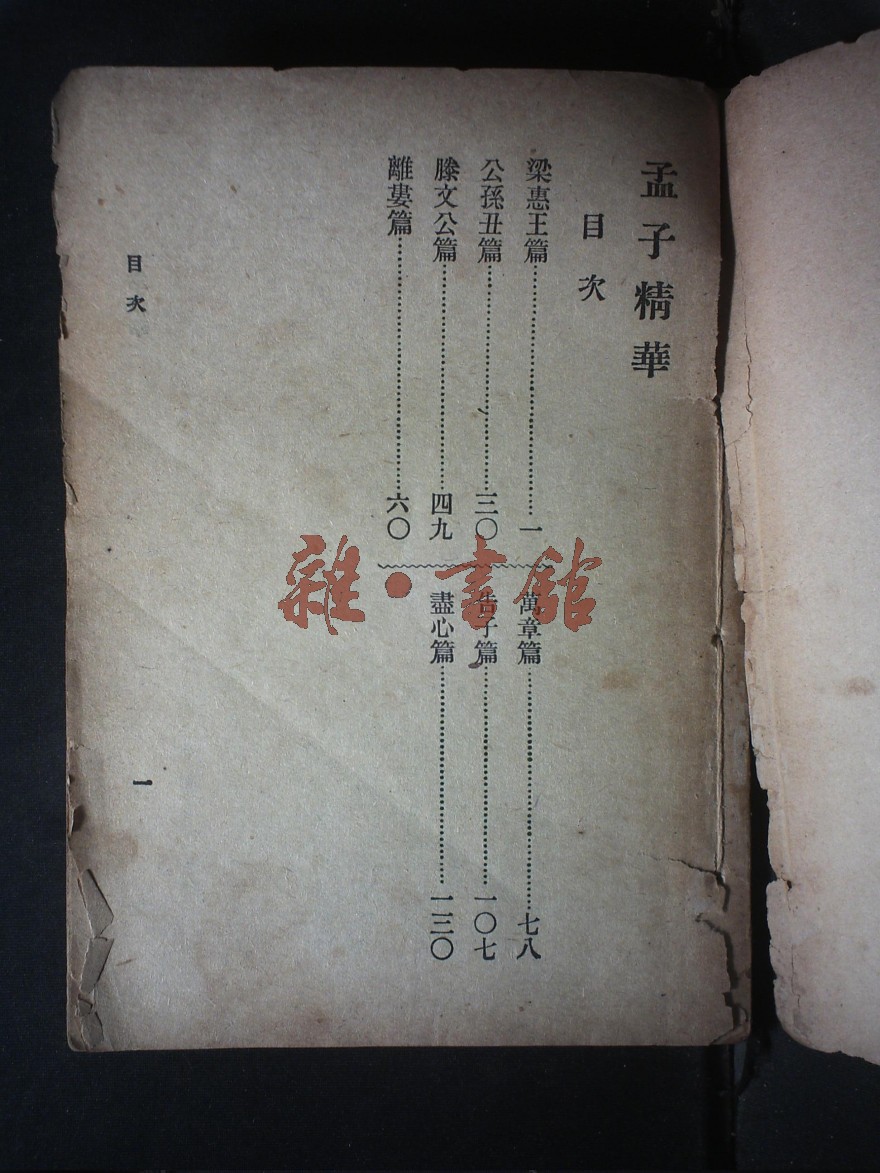 孟子精華
目次
梁惠王篇……一
公孫丑篇……三〇
滕文公篇……四九
離婁篇……六〇
萬章篇……七八
告子篇……一〇七
盡心篇……一三〇
目次
一
雜·書館